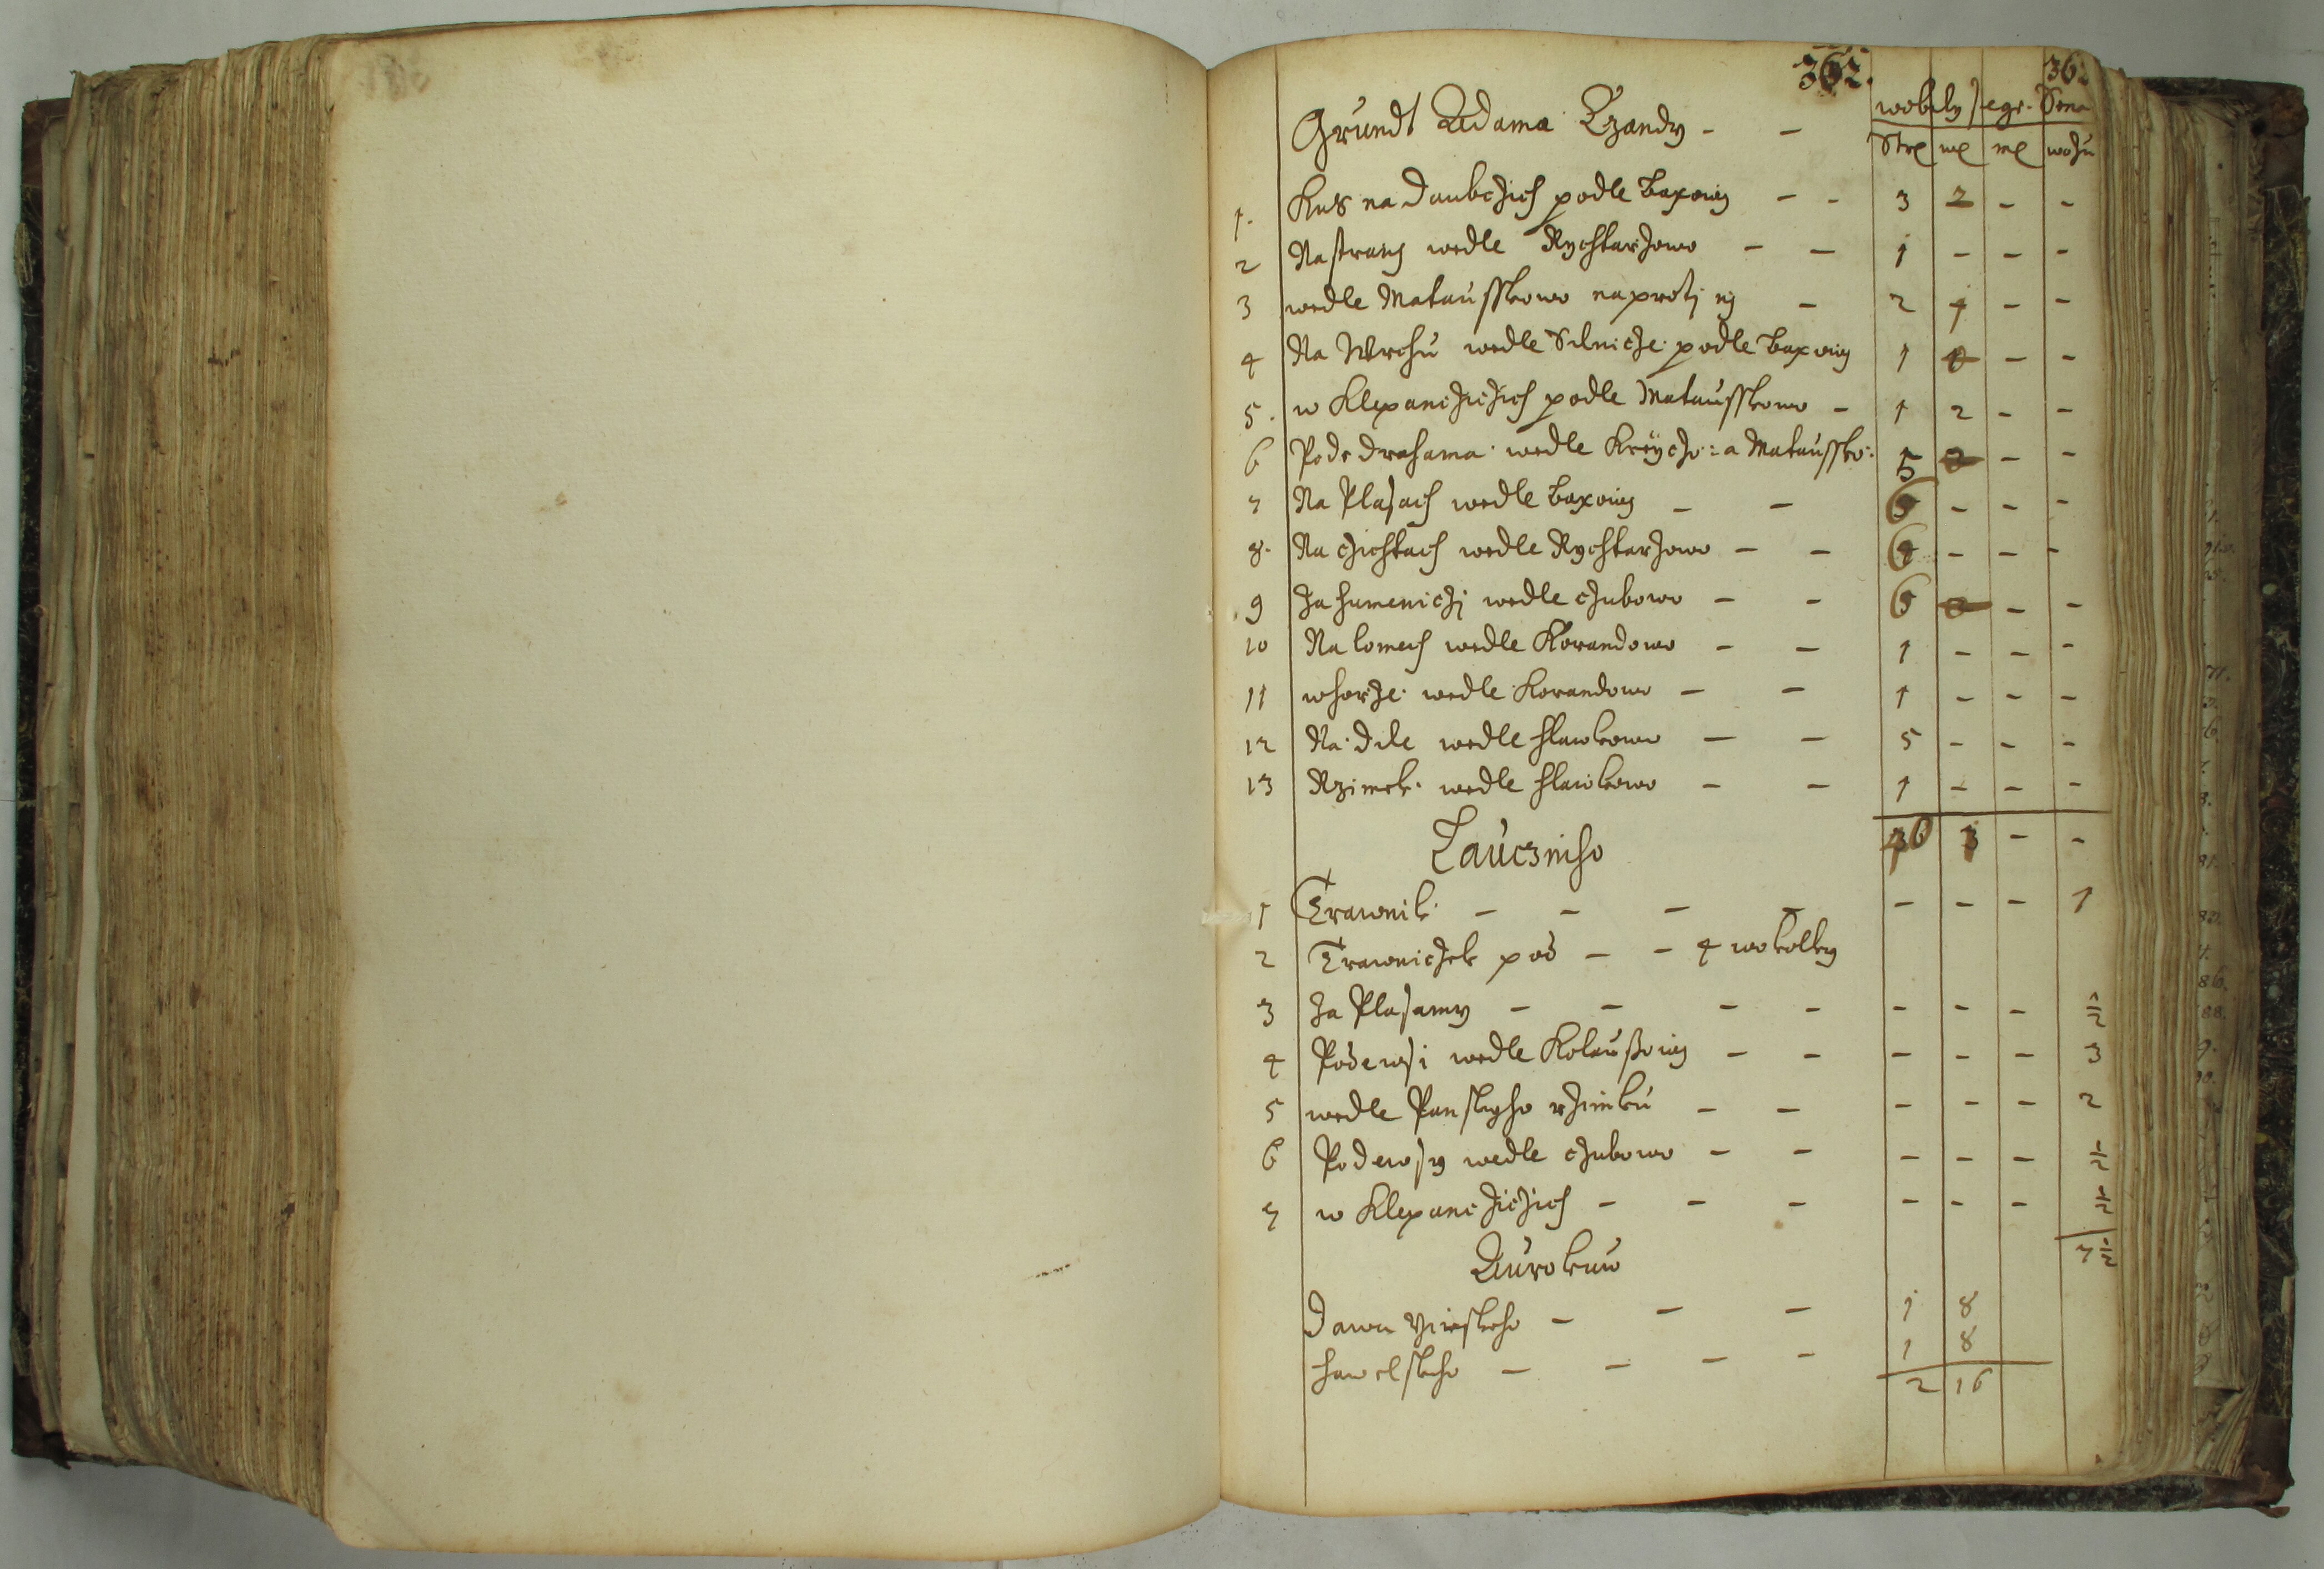 362. 36
Grundt Adama Czandy - - wobily segr. Sena
Str m m wozu
1. Kus na Daubczich podle Baxowy - - 3 2 - -
2 Na strany wedle Rychtarzowo - - 1 - - -
3 wedle Matausskowo naprotj ny - 2 1 - -
4 Na Wrchu wedle Silnicze podle Baxowy 1 - -
5. w Klepanczicjich podle Matausskowo - 1 2 - -
6 Pode drahama wedle Kreyczo: a Matausko: 5 - -
7 Na Plasach wedle Baxowy - - 6 - - -
8. Na czichtach wedle Rychtarzowo - - 6 - - -
9 Za humeniczj wedle czubowo - - 6 - -
10 Na lomech wedle Korandowo - - 1 - - -
11 whorze wedle Korandowo - - 1 - - -
12 Na dile wedle hlawkowo - - 5 - - -
13 Rzimek wedle hlawkowo - - 1 - - -
36 3 - -
Lauczniho
1 Trawnik - - - - - - - 1
2 Trawniczek pod - - 4 wokolky
3 Za Plasamy - - - - - - - 1/2
4 Podewsi wedle Kolaußowy - - - - - 3
5 wedle Panskyho rzimku - - - - - 2
6 Podewsy wedle czubowo - - - - - 1/2
7 w Klepanczicjich - - - - - - 1/2
7 1/2
Aurokuw
Dawa - - - 1 8
hawelskeho - - - - 1 8
2 16